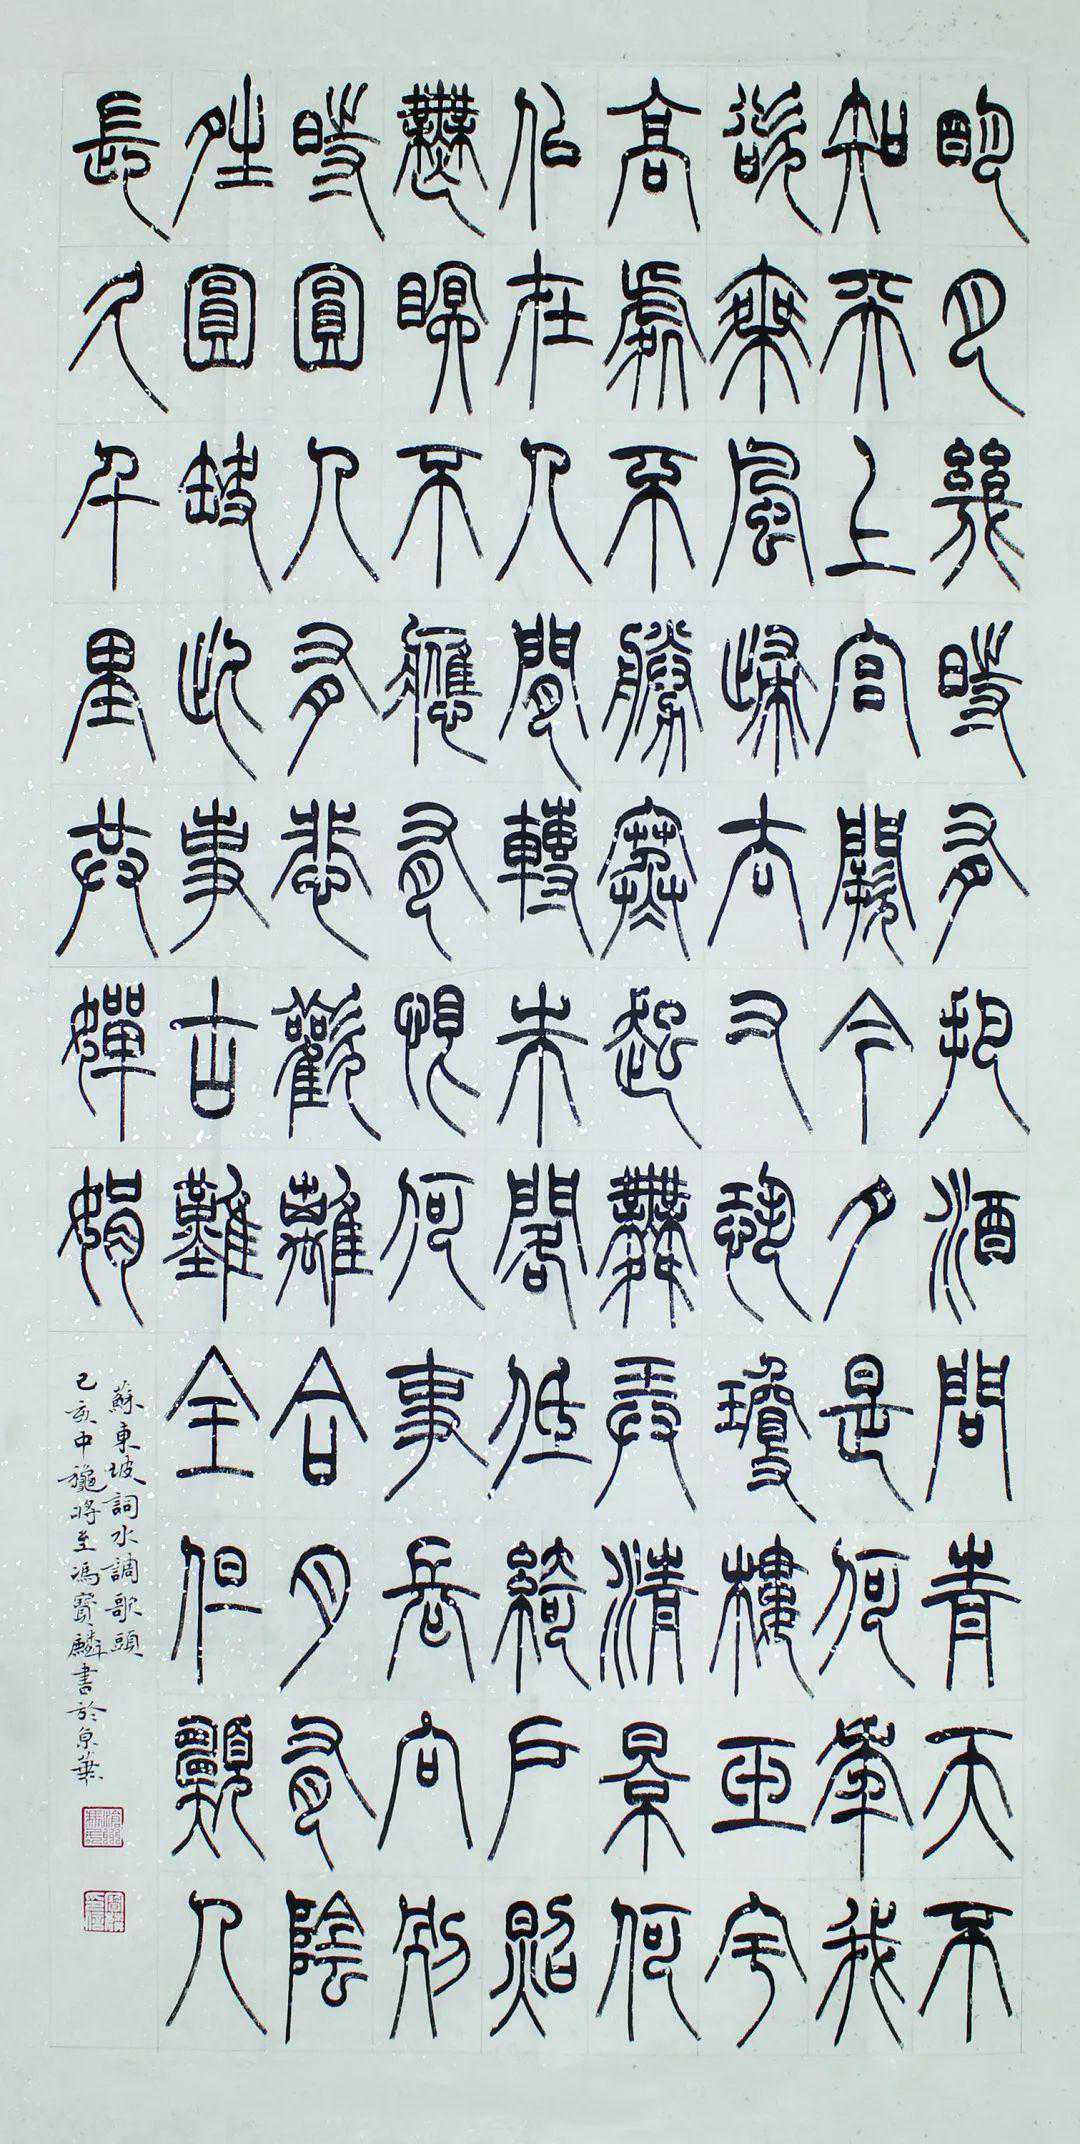 明月幾時有把酒問青天不
知天上宮闕今夕是何年我
欲乘風歸去又恐瓊樓玉宇
高處不勝寒起舞弄清景何
似在人間轉朱閣低綺戶照
無眠不應有恨何事長向別
時圓人有悲歡離合月有陰
晴圓缺此事古難全但願人
長久千里共嬋娟
蘇東坡詞水調歌頭
己亥中龝將至馮寶麟書於京華